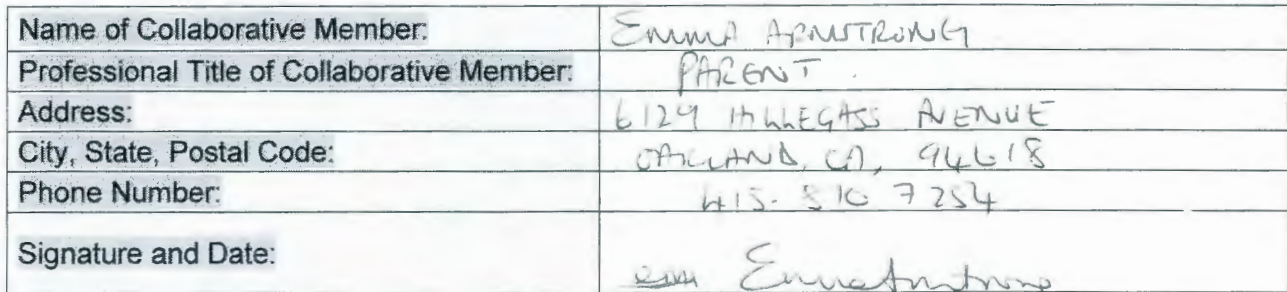 Name of Collaborative Member: EMMA ARMSTRONG
Professional Title of Collaborative Member: PARENT.
Address: 6129 HILLEGASS AVENUE
City, State, Postal Code: OAKLAND, CA, 94618
Phone Number: 415. 510 7254
Signature and Date: Emma Armstrong